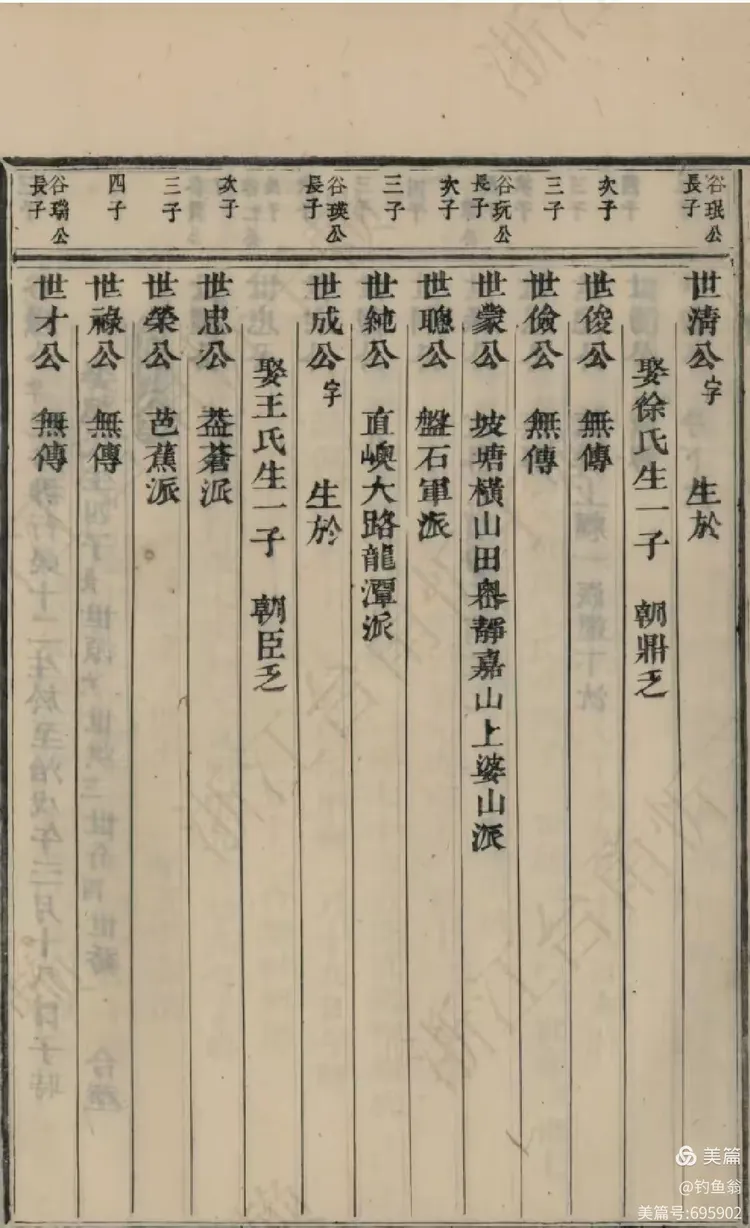 谷珉公長子
世清公字　生於
娶徐氏生一子　朝鼎乏
次子
世俊公　無傳
三子
世儉公　無傳
谷玩公長子
世蒙公　坡塘橫山田嶴靜嘉山上婆山派
次子
世聰公　盤石軍派
三子
世純公　直嶼大路龍潭派
谷瑛公長子
世成公字　生於
娶王氏生一子　朝臣乏
次子
世忠公　蒼派
三子
世榮公　芭蕉派
四子
世祿公　無傳
谷瑞公長子
世才公　無傳
美篇
@钓鱼翁
美篇号:695902